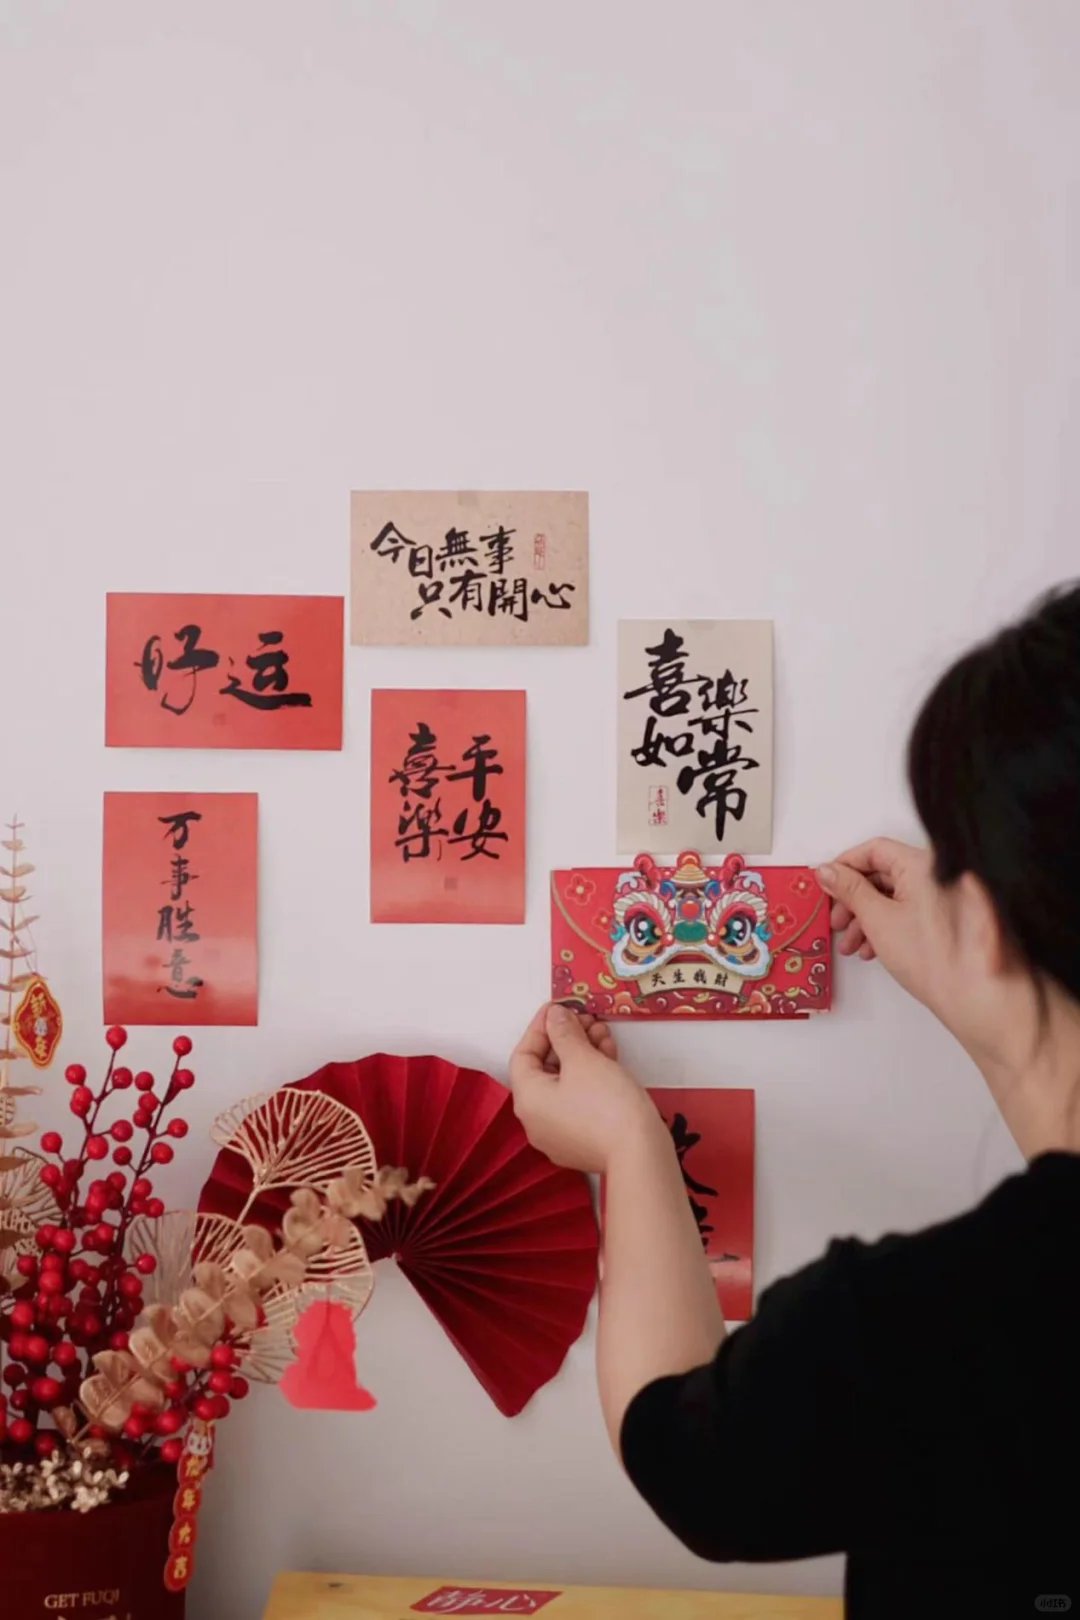 今日無事
只有開心
好运
喜樂
如常
喜樂
平安
喜樂
万事胜意
天生我財
GET FUQI
静心